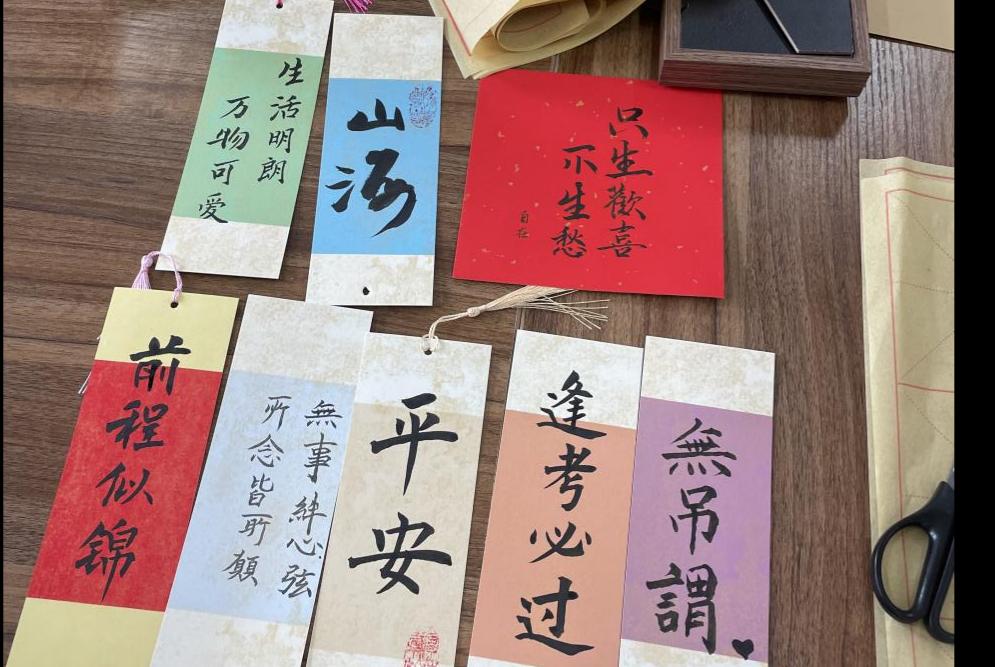 生活明朗
万物可爱
山海
只生歡喜
不生愁
自在
前程似锦
無事絆心弦
所念皆所願
平安
逢考必过
無吊謂